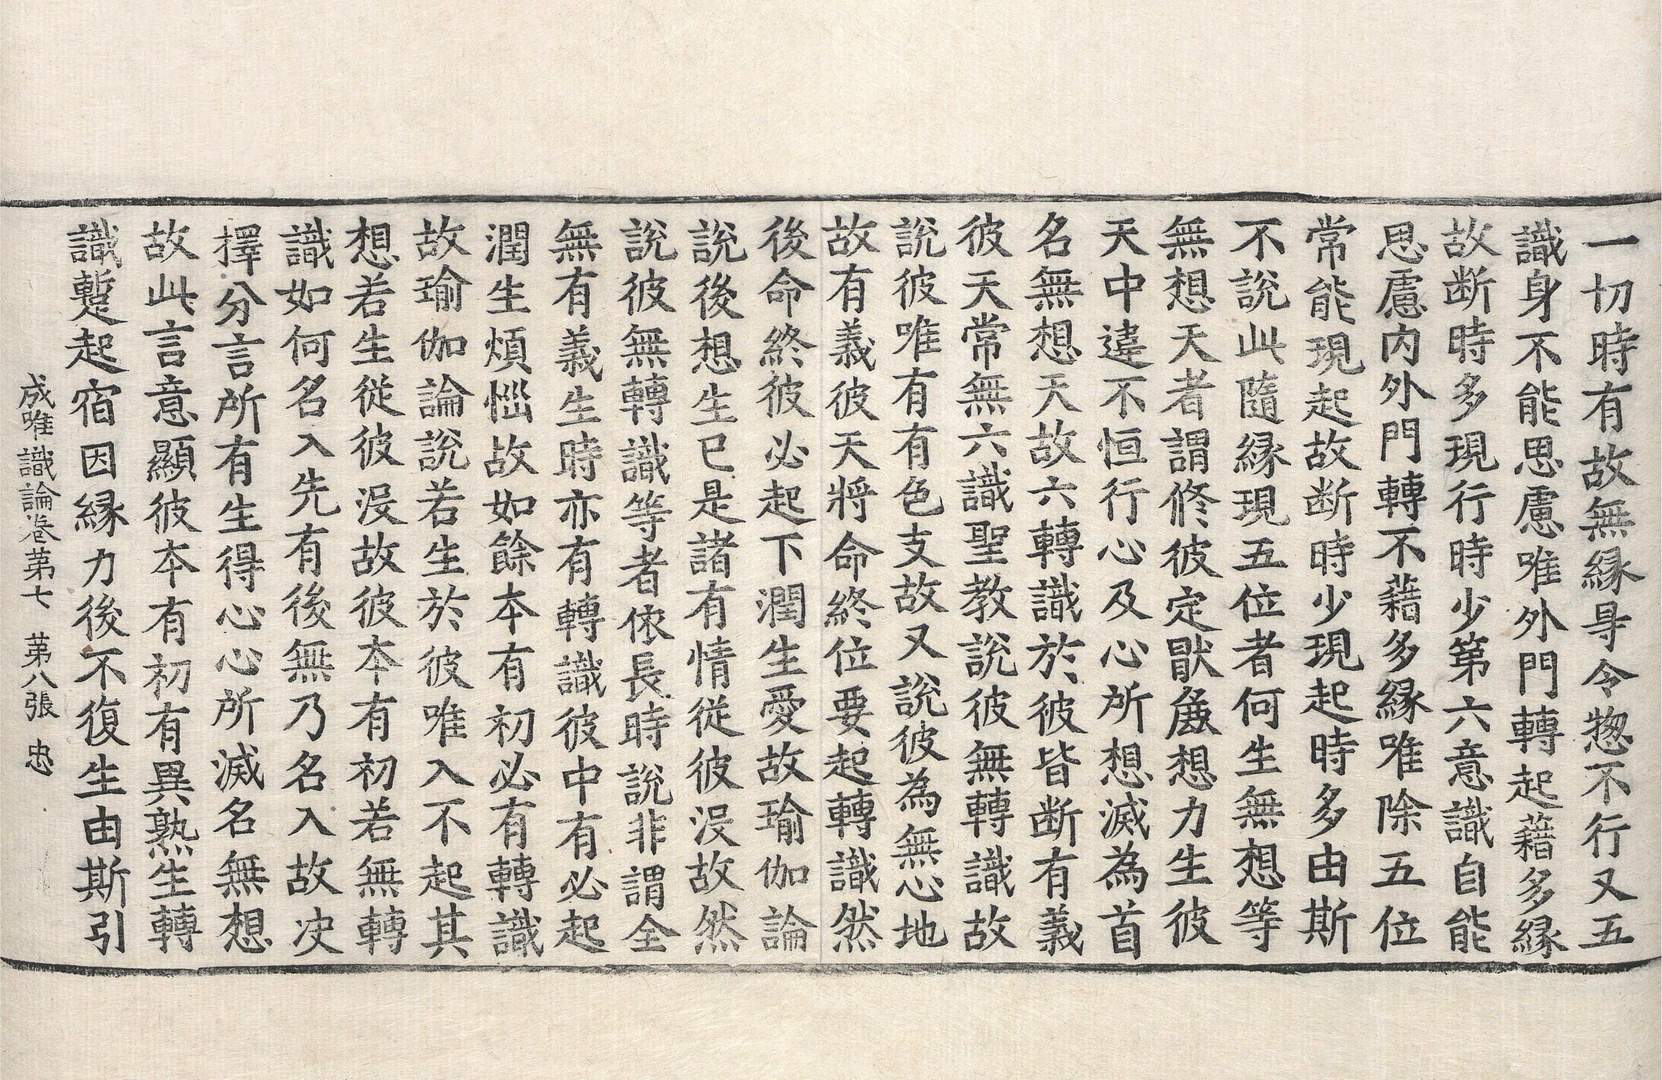 一切時有故無縁㝵令惣不行又五
識身不能思慮唯外門轉起藉多縁
故断時多現行時少第六意識自能
思慮内外門轉不藉多縁唯除五位
常能現起故断時少現起時多由斯
不說此隨縁現五位者何生無想等
無想天者謂修彼定猒麁想力生彼
天中違不恒行心及心所想滅為首
名無想天故六轉識於彼皆断有義
彼天常無六識聖教說彼無轉識故
說彼唯有有色支故又說彼為無心地
故有義彼天將命終位要起轉識然
後命終彼必起下潤生愛故瑜伽論
說後想生已是諸有情從彼沒故然
說彼無轉識等者依長時說非謂全
無有義生時亦有轉識彼中有必起
潤生煩惱故如餘本有初必有轉識
故瑜伽論說若生於彼唯入不起其
想若生從彼沒故彼本有初若無轉
識如何名入先有後無乃名入故决
擇分言所有生得心心所滅名無想
故此言意顯彼本有初有異熟生轉
識蹔起宿因縁力後不復生由斯引
成唯識論卷第七　第八張　忠